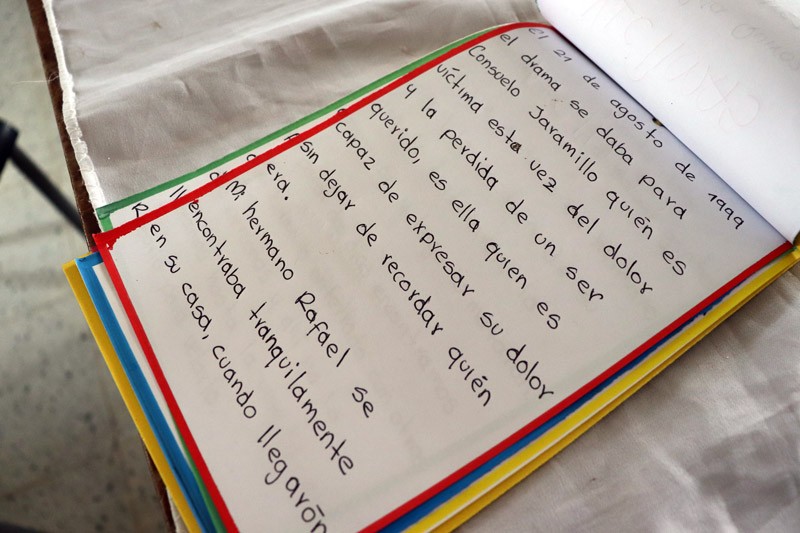 El 21 de agosto de 1999
el drama se daba para
Consuelo Jaramillo quién es
víctima esta vez del dolor
y la perdida de un ser
querido, es ella quien es
capaz de expresar su dolor
sin dejar de recordar quién
era.
Mi hermano Rafael se
encontraba tranquilamente
en su casa, cuando llegarón